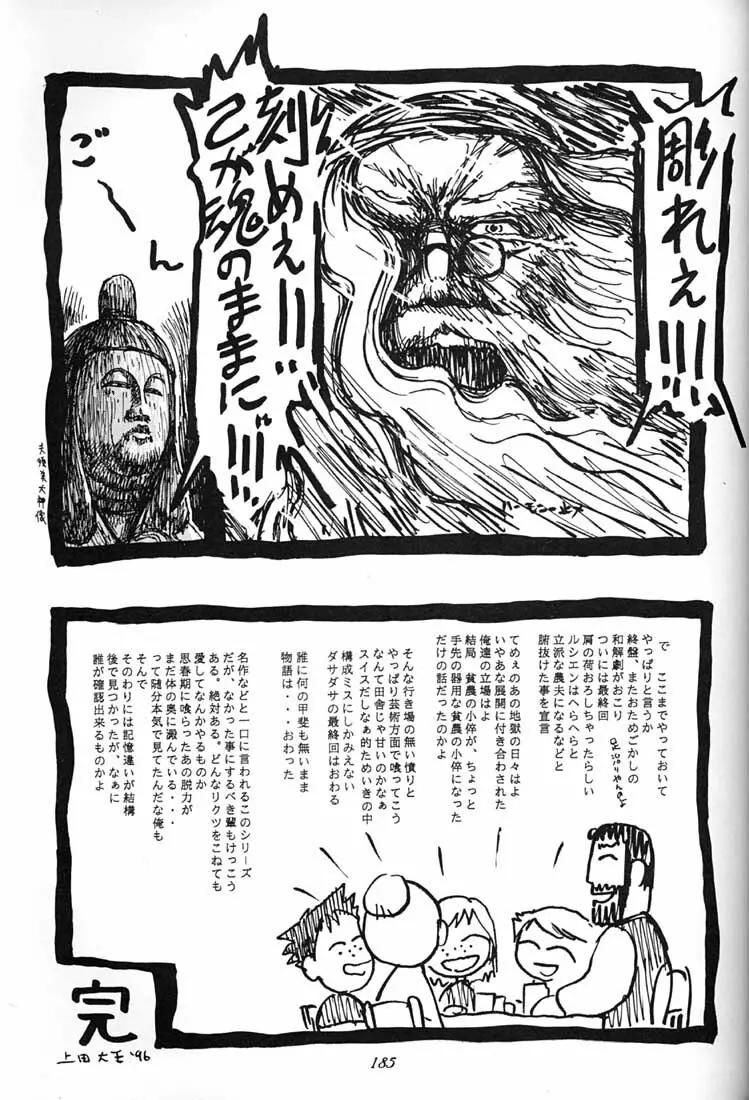 彫れえ!!!
刻めえ!!
己が魂のままに!!!
ごーん
で ここまでやっておいて
やっぱりと言うか
終盤、またおためごかしの
和解劇がおこり
ついには最終回
肩の荷おろしちゃったらしい
ルシエンはへらへらと
立派な農夫になるなどと
腑抜けた事を宣言
てめぇのあの地獄の日々はよ
いやあな展開に付き合わされた
俺達の立場はよ
結局 貧農の小倅が、ちょっと
手先の器用な貧農の小倅になった
だけの話だったのかよ
そんな行き場の無い憤りと
やっぱり芸術方面で喰ってこう
なんて田舎じゃ甘いのかなぁ
スイスだしなぁ的ためいきの中
構成ミスにしかみえない
ダサダサの最終回はおわる
誰に何の甲斐も無いまま
物語は・・・おわった
名作などと一口に言われるこのシリーズ
だが、なかった事にするべき輩もけっこう
ある。絶対ある。どんなリクツをこねても
愛してなんかやるものか
思春期に喰らったあの脱力が
まだ体の奥に澱んでいる・・・
って随分本気で見てたんだな俺も
そんで
そのわりには記憶違いが結構
後で見つかったが、なぁに
誰が確認出来るものかよ
完
上田 大王 '96
185